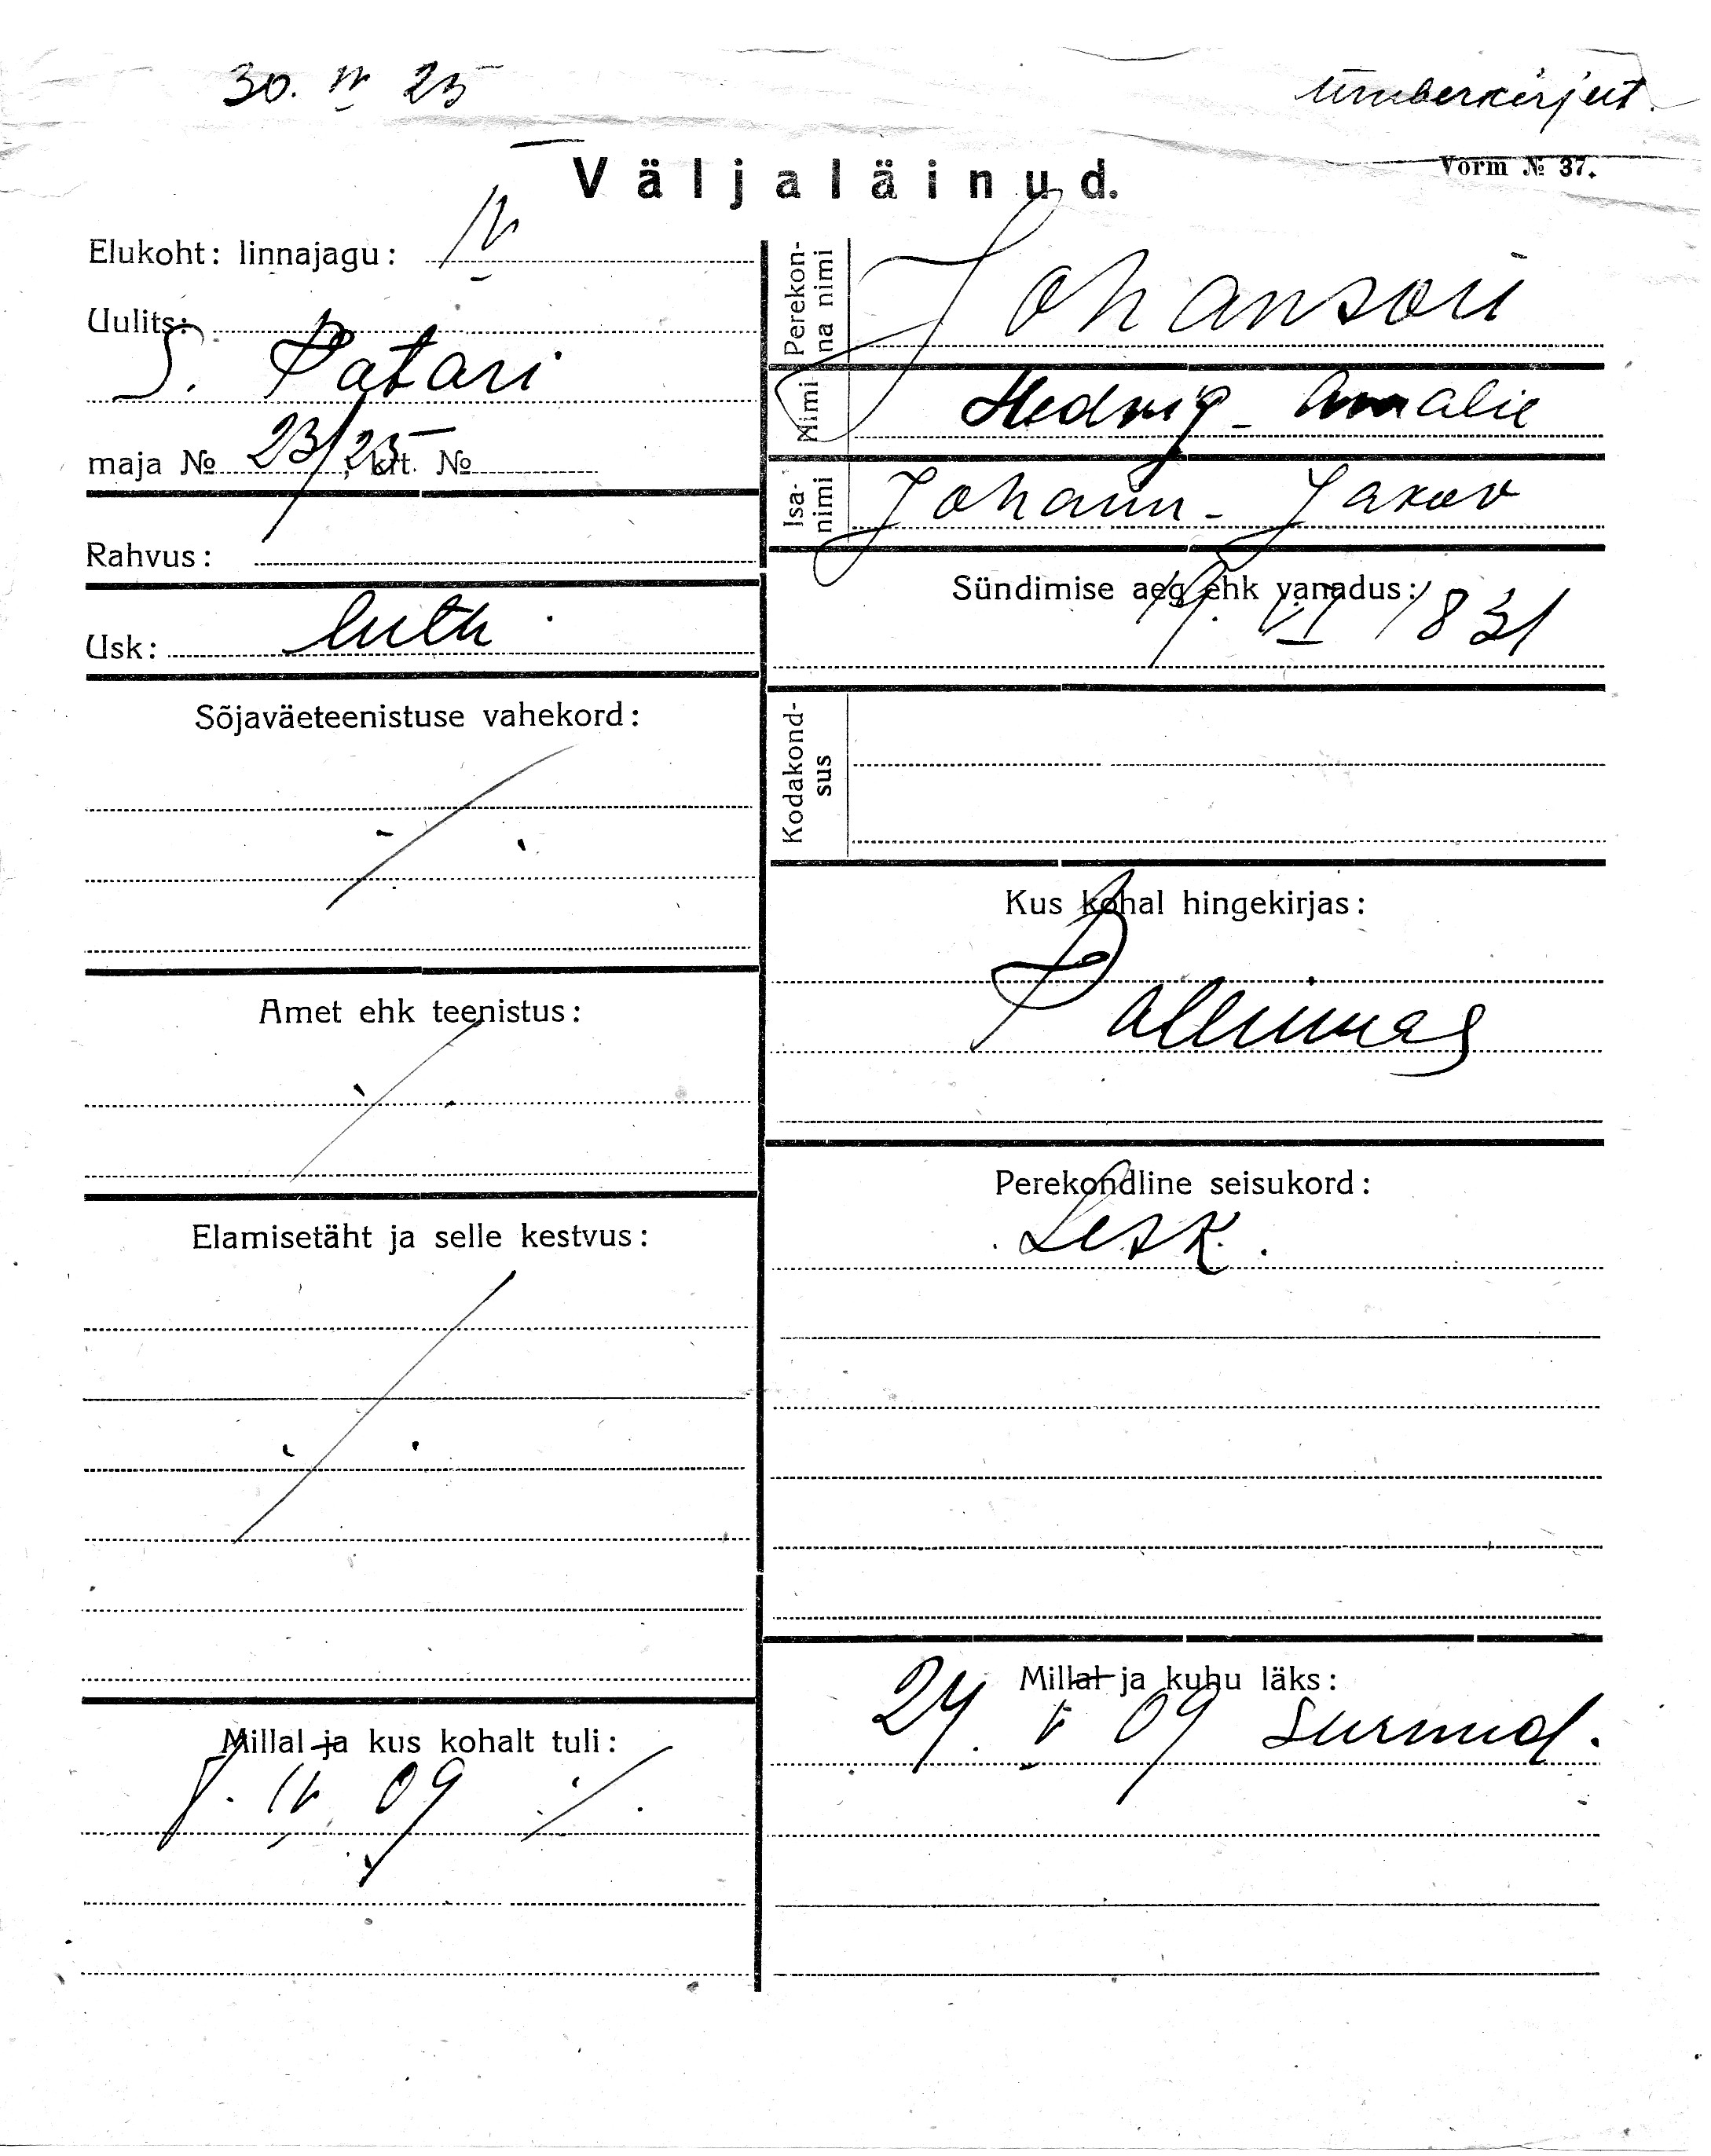 30. IV 25
ümberkirjut.
Väljaläinud.
Vorm № 37.
Elukoht: linnajagu: IV
Uulits:
S. Patari
maja № 23/25, krt. №
Rahvus:
Usk: luth.
Sõjaväeteenistuse vahekord:
Amet ehk teenistus:
Elamisetäht ja selle kestvus:
Millal ja kus kohalt tuli:
IV 09
Perekonna nimi Johanson
Nimi Hedwig-Amalie
Isanimi Johann-Jakov
Sündimise aeg ehk vanadus:
19. VI 1831
Kodakond-
sus
Kus kohal hingekirjas:
Tallinnas
Perekondline seisukord:
Lesk.
Millal ja kuhu läks:
24. V 09 surnud.